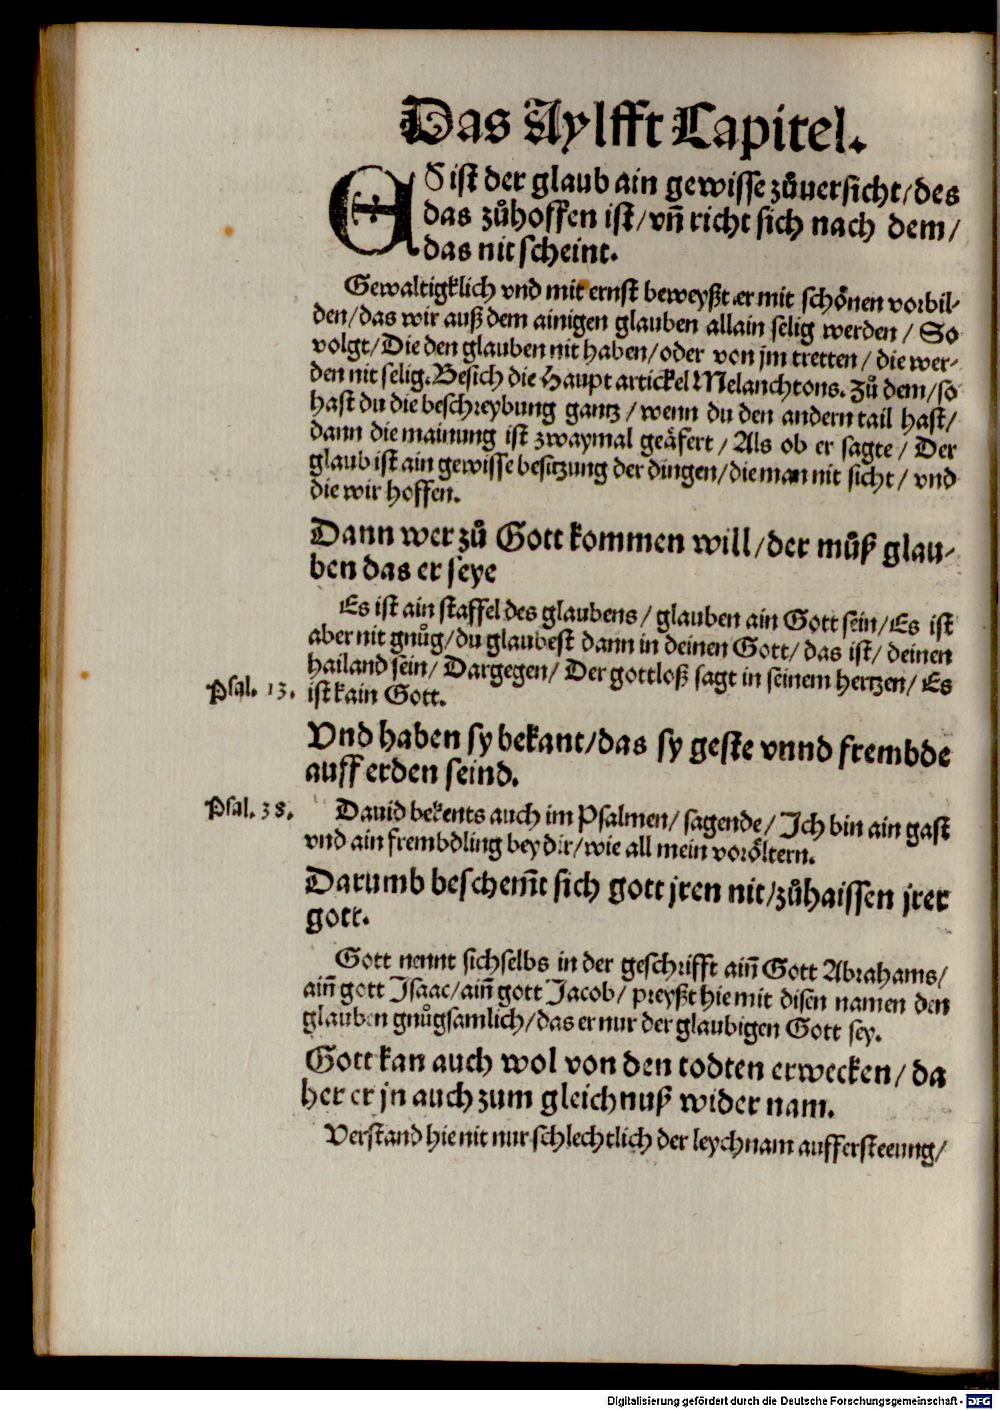 Das Aylfft Capitel.
ES ist der glaub ain gewisse zůuersicht/des
das zůhoffen ist/vñ richt sich nach dem/
das nit scheint.
Gewaltigklich vnd mit ernst beweyßt er mit schönen vorbil-
den/das wir auß dem ainigen glauben allain selig werden/ So
volgt/Die den glauben nit haben/oder von jm tretten/ die wer-
den nit selig. Besich die Haupt artickel Melanchtons. Zů dem/so
hast du die beschreybung gantz/wenn du den andern tail hast/
dann die mainung ist zwaymal geäfert/ Als ob er sagte/ Der
glaub ist ain gewisse besitzung der dingen/die man nit sicht/ vnd
die wir hoffen.
Dann wer zů Gott kommen will/der můß glau-
ben das er seye
Es ist ain staffel des glaubens/ glauben ain Gott sein/Es ist
aber nit gnůg/du glaubest dann in deinen Gott/ das ist/ deinen
hailand sein/ Dargegen/ Der gottloß sagt in seinem hertzen/ Es
Psal. 13. ist kain Gott.
Vnd haben sy bekant/das sy geste vnnd frembde
auff erden seind.
Psal. 38. Dauid bekents auch im Psalmen/ sagende/ Ich bin ain gast
vnd ain frembdling bey dir/wie all mein voröltern.
Darumb beschem̃t sich gott jren nit/zůhaissen jrer
gott.
Gott nennt sichselbs in der geschrifft aiñ Gott Abrahams/
aiñ gott Isaac/aiñ gott Jacob/ preyßt hiemit disen namen den
glauben gnůgsamlich/das er nur der glaubigen Gott sey.
Gott kan auch wol von den todten erwecken/ da
her er jn auch zum gleichnuß wider nam.
Verstand hie nit nur schlechtlich der leychnam auffersteeung/
Digitalisierung gefördert durch die Deutsche Forschungsgemeinschaft - DFG